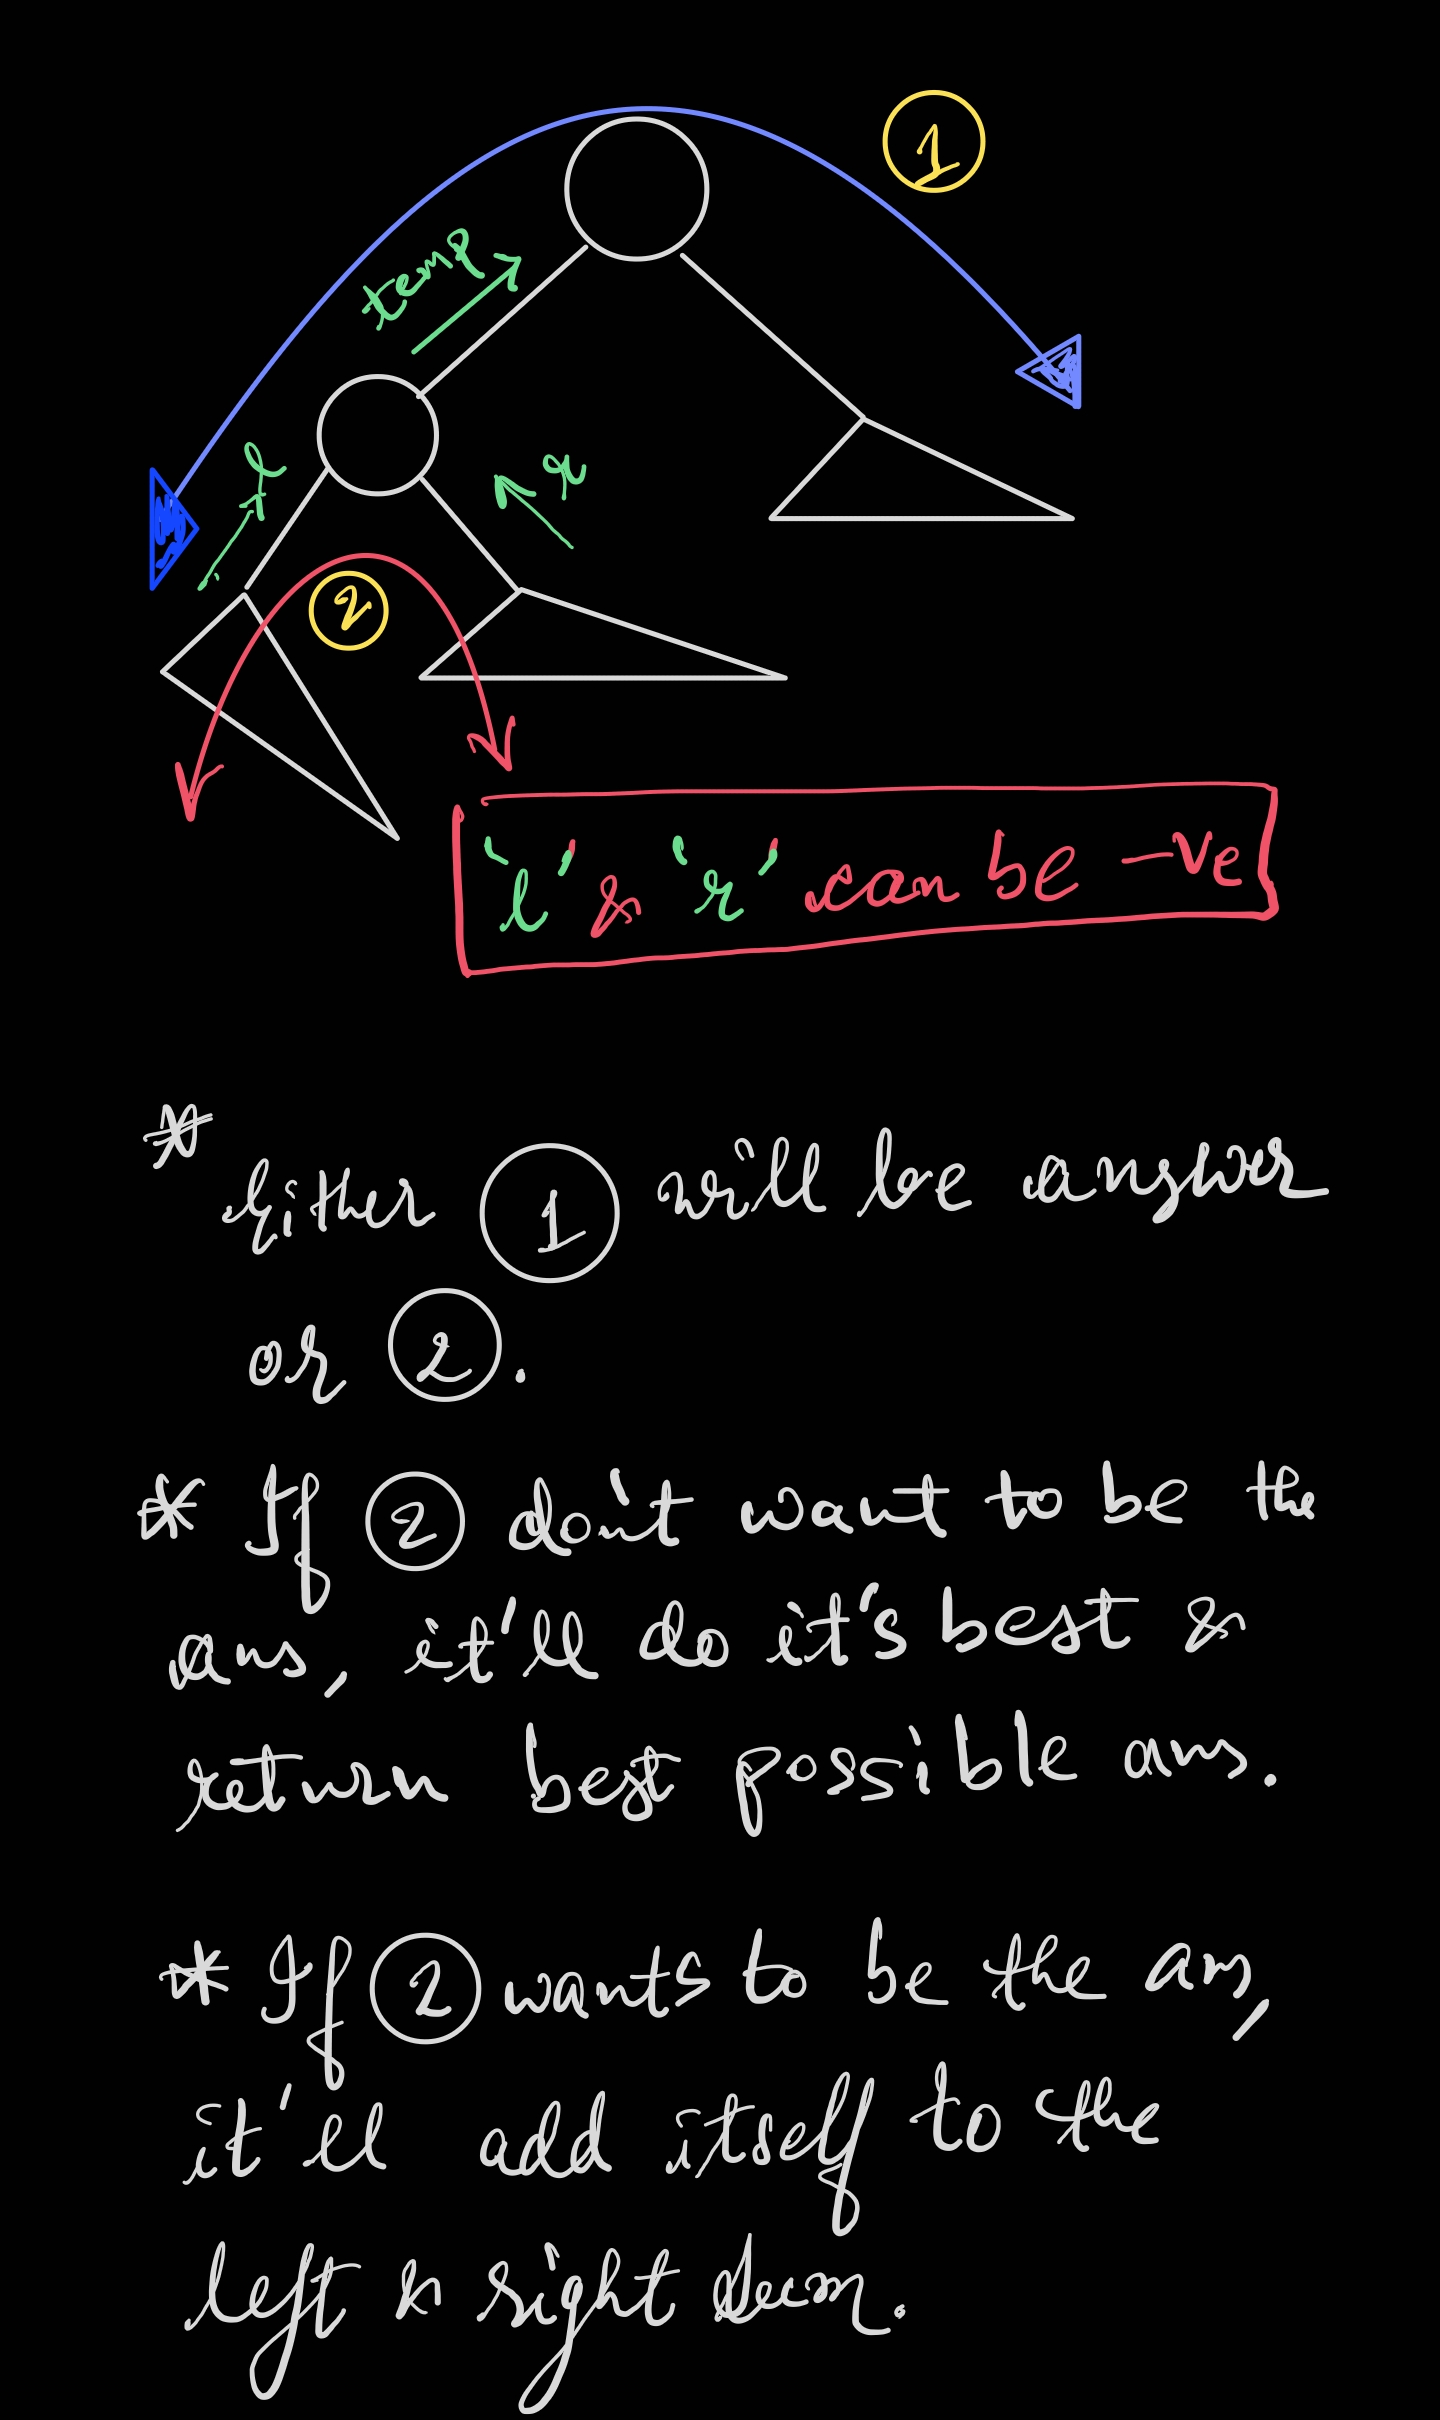 1
temp
l
r
2
'l' & 'r' can be -ve
* Either 1 will be answer
or 2.
* If 2 don't want to be the
ans, it'll do it's best &
return best possible ans.
* If 2 wants to be the ans,
it'll add itself to the
left & right sum.